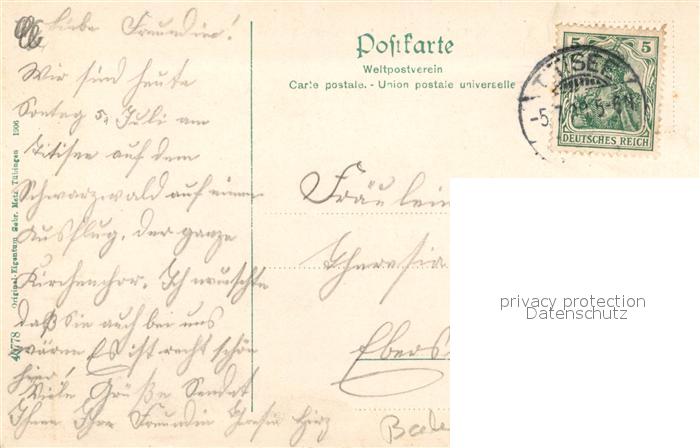 Liebe Freundin!
Wir sind heute
Sontag 5. Juli am
Titisee auf dem
Schwarzwald auf einem
Ausflug, der ganze
Kirchenchor. Ich wünschte
daß Sie auch bei uns
wären Es ist recht schön
hier!
Viele Grüße Sendet
Ihnen Ihre Freundin
Postkarte
Weltpostverein
Carte postale. - Union postale universelle
5 5
TITISEE
DEUTSCHES REICH
Fräulein
Theresia
Ebers
Bade
privacy protection
Datenschutz
40778 Original-Eigentum Gebr. Metz, Tübingen 1906